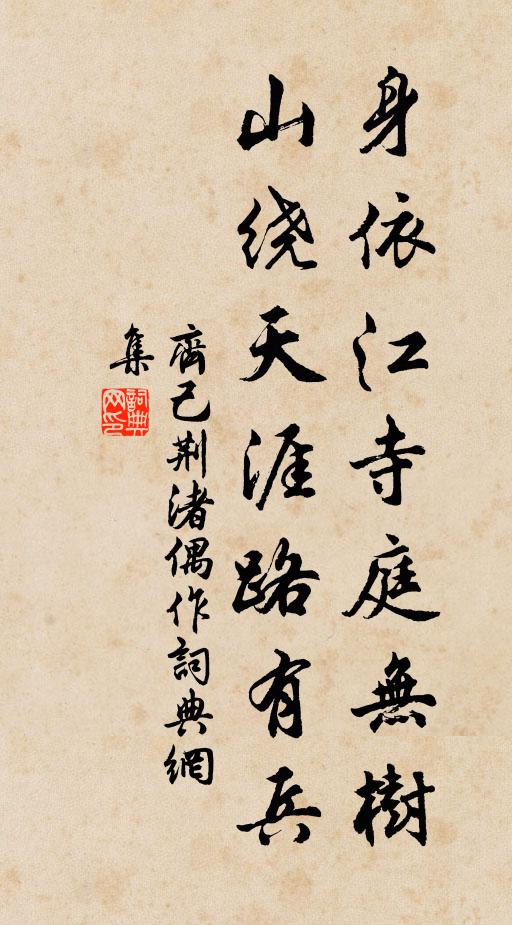 身依江寺庭無樹
山绕天涯路有兵
齊己荆渚偶作詞典網
集
詞典網印